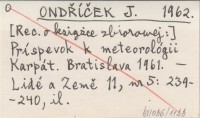 ONDŘÍČEK J. 1962.
[Rec. o książce zbiorowej:]
Príspevok k meteorológii
Karpát. Bratislava 1961. —
Lidé a Země 11, nr 5: 239-
-240, il.